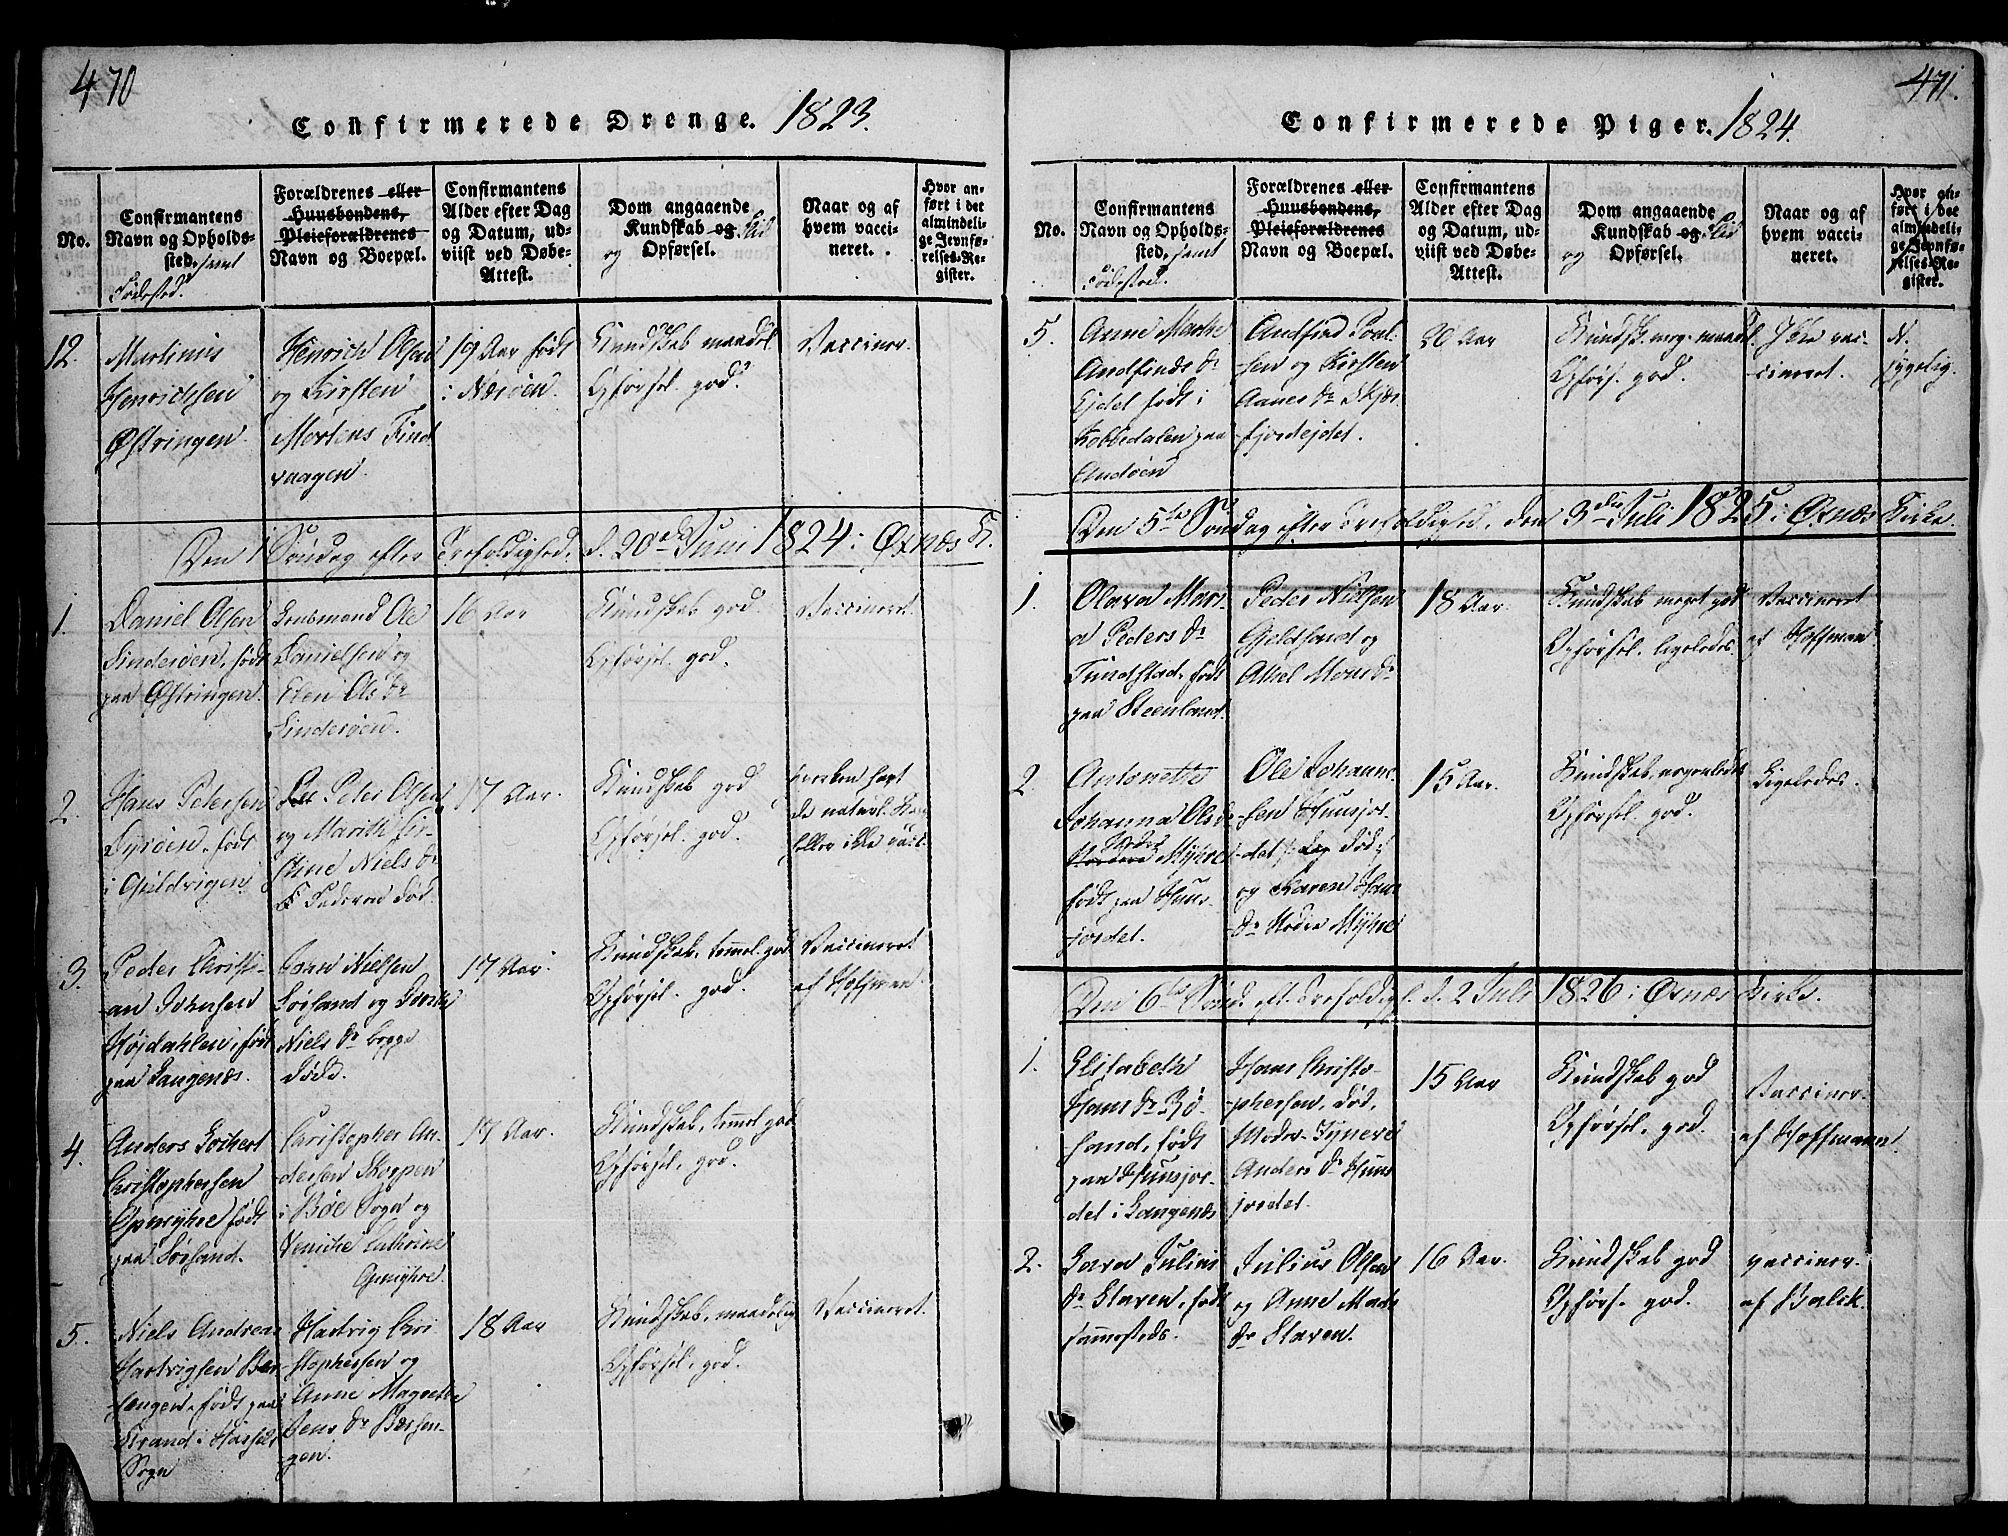 470
Confirmerede Drenge. 1823.
No.
Confirmantens Navn og Opholdssted. samt Fødested.
Forældrenes eller Huusbondens, Pleieforældrenes Navn og Boepæl.
Confirmantens Alder efter Dag og Datum, udviist ved Døbe-Attest.
Dom angaaende Kundskab og Flid og Opførsel.
Naar og af hvem vaccineret.
Hvor anført i det almindelige Jevnførelses-Register.
12.
Martinus
Henrichsen
Østringen
Henrich Olsen
og Kirsten
Mortens Find
vaagen
19 Aar født
i Nærøen.
Kundskab maadel.
Opførsel. god.
Vacciner.
Den 1 Søndag efter Trefoldighed. d. 20de Juni 1824 i Øxnæs K.
1.
Daniel Olsen
Tinderøen, født
paa Østringen
Huusmand Ole
Danielsen og
Elen Ols dr
Tinderøen.
16 Aar
Kundskab god.
Opførsel. god.
Vaccineret.
2.
Hans Petersen
Dyrøen. født
i Guldvigen
Peter Olsen
og Marith Kir-
stine Niels dr
Faderen død.
17 Aar.
Kundskab god
Opførsel. god.
3.
Peder Christi-
an Johnsen
Højdahlen, født
paa Langenæs.
John Nielsen
Sørland og Dorthe
Niels dr begge
døde.
17 Aar
Kundskab, temmel. god
Opførsel. god.
Vaccineret
af Hoffman.
4.
Anders Gothert
Christophersen
Opmyhre født
paa Sørland.
Christopher An-
dersen Skorpen
i Bøe Sogn og
Veniche Cathrine
Opmyhre
17 Aar.
Kundskab, temmel god
Opførsel, god.
5.
Niels Andreas
Hartvigsen Bar-
sengen, født paa
Strand i Hassels
Sogn
Hartvig Chri-
stophersen og
Anne Magrethe
Jens dr Barsen-
gen.
18 Aar
Kundskab, maadelig
Opførsel, god.
Vaccineret.
471.
Confirmerede Piger. 1824.
No.
Confirmantens Navn og Opholdssted. samt Fødested.
Forældrenes eller Huusbondens, Pleieforældrenes Navn og Boepæl.
Confirmantens Alder efter Dag og Datum, udviist ved Døbe-Attest.
Dom angaaende Kundskab og Flid og Opførsel.
Naar og af hvem vaccineret.
Hvor anført i det almindelige Jevnførelses-Register.
5.
Anne Marthe
Andfinds dr
Ejdet født i
Kobbedalen paa
Andøen
Andfind Poul-
sen og Kirsten
Aanes dr Skjær-
fjordejdet.
20 Aar
Kundsk. meg. maadel.
Opførs. god.
Ikke vac-
cineret.
N.
sygelig.
Den 5te Søndag efter Trefoldighed, den 3die Juli 1825 i Øxnæs Kirke.
1.
Olava Mari-
a Peders dr
Tindstad, født
paa Steenland.
Peder Nielsen
Gjeldsand og
Athel Mons dr
18 Aar.
Kundskab meget god
Opførsel. ligeledes.
Vaccineret
af Hoffman
2.
Antonette
Johanna Ols dr
Nordre Myhre
født paa Huus-
jordet.
Ole Johanne-
sen Huusjor-
det død
og Karen Hans
dr Nordre Myhre
15 Aar.
Kundskab, nogenledes
Opførsel. god.
Ligeledes.
Den 6te Sønd. eft. Trefoldigh. d. 2 Juli 1826 i Øxnæs Kirke.
1.
Elisabeth
Hans dr Rø-
sand, født
paa Huusjor-
det i Langenæs
Hans Christo-
phersen, død,
Moder
Anders dr Huus
jordet.
15 Aar
Kundskab god
Opførsel, god.
Vacciner.
af Hoffmann.
2.
Sara Julius
dr Staven, født
sammesteds.
Julius Olsen
og Anne Mads
dr Staven.
16 Aar.
Kundskab god
Opførs. god.
vacciner.
af Balck.